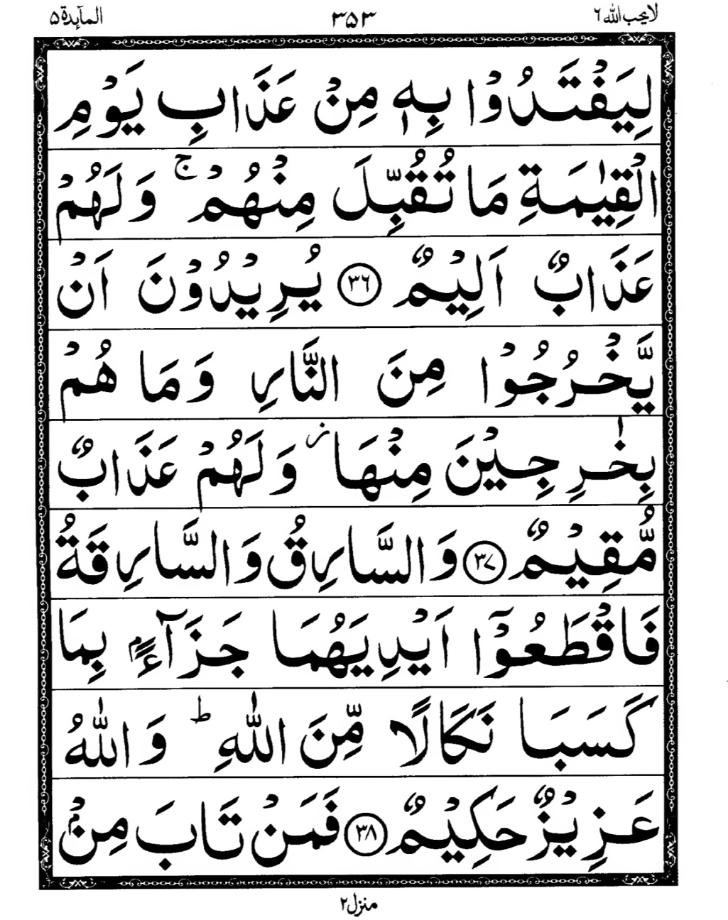 لا يحب الله ٦ ٣٥٣ المآئدة ٥
لِيَفْتَدُوْا بِهٖ مِنْ عَذَابِ يَوْمِ
الْقِيٰمَةِ مَا تُقُبِّلَ مِنْهُمْ ۚ وَلَهُمْ
عَذَابٌ اَلِيْمٌ ﴿٣٦﴾ يُرِيْدُوْنَ اَنْ
يَّخْرُجُوْا مِنَ النَّارِ وَمَا هُمْ
بِخٰرِجِيْنَ مِنْهَا ؗ وَلَهُمْ عَذَابٌ
مُّقِيْمٌ ﴿٣٧﴾ وَالسَّارِقُ وَالسَّارِقَةُ
فَاقْطَعُوْٓا اَيْدِيَهُمَا جَزَآءًۢ بِمَا
كَسَبَا نَكَالًا مِّنَ اللّٰهِ ؕ وَاللّٰهُ
عَزِيْزٌ حَكِيْمٌ ﴿٣٨﴾ فَمَنْ تَابَ مِنْۢ
منزل ٢